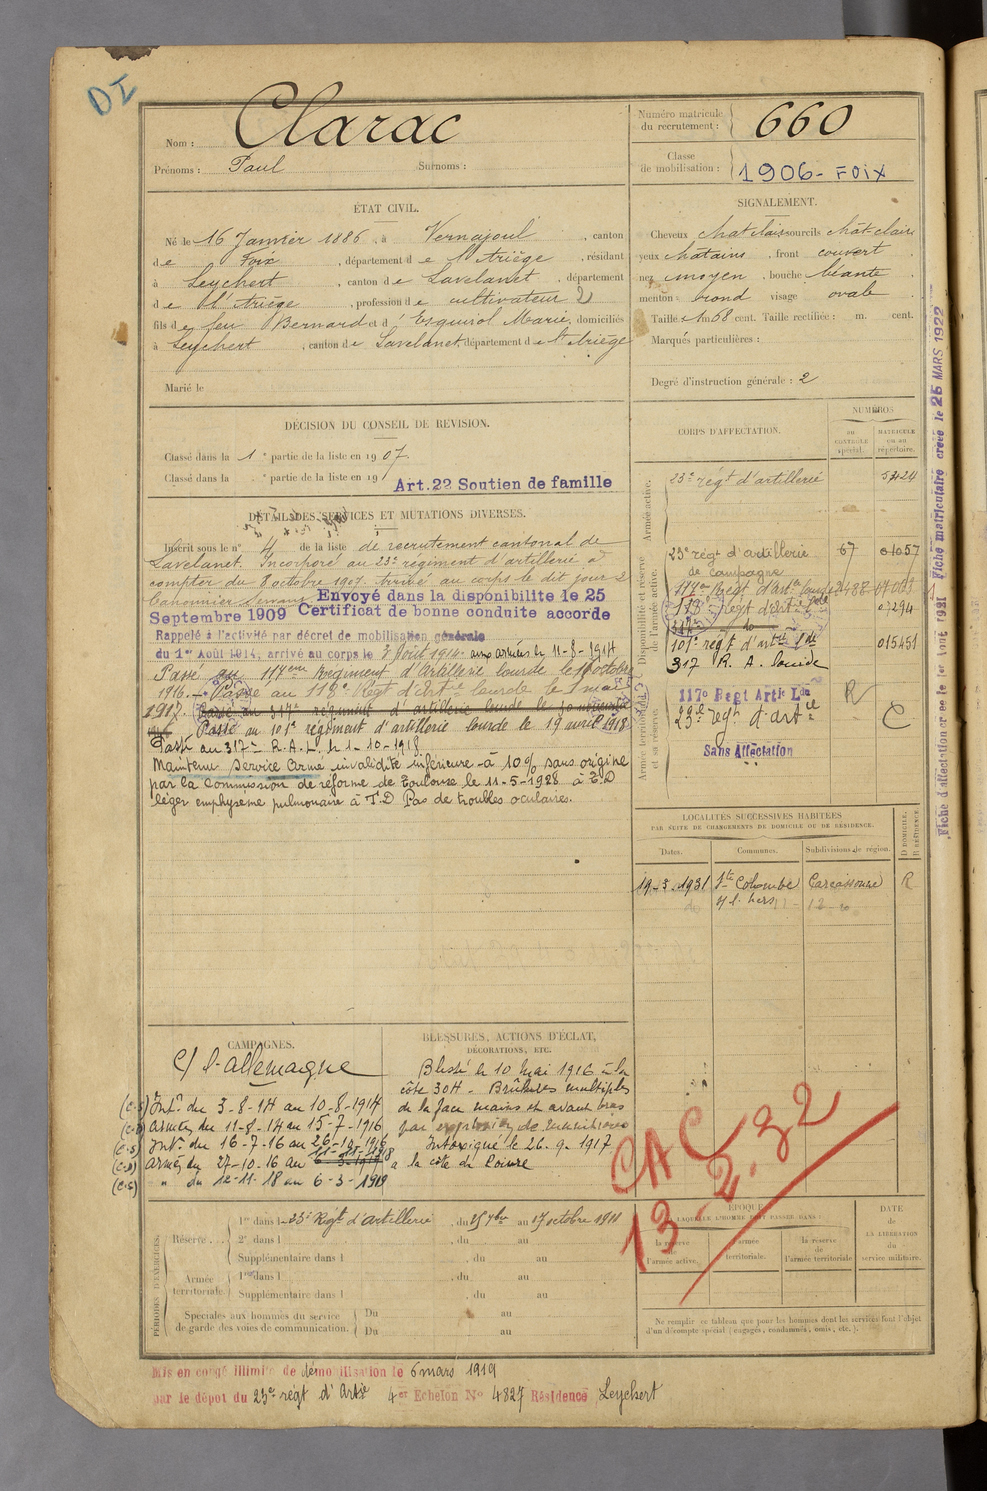 DI
Nom : Clarac
Prénoms : Paul Surnoms :
Numéro matricule du recrutement : 660
Classe de mobilisation : 1906 - FOIX
ÉTAT CIVIL.
Né le 16 Janvier 1886, à Vernajoul, canton
de Foix, département de l'Ariège, résidant
à Leychert, canton de Lavelanet, département
de l'Ariège, profession de cultivateur 2
fils de feu Bernard et d'Esquirol Marie, domiciliés
à Leychert, canton de Lavelanet, département de l'Ariège
Marié le
SIGNALEMENT.
Cheveux chat clais sourcils chât-clairs
yeux chatains, front couvert
nez moyen, bouche béante
menton : rond visage ovale
Taille 1 m 58 cent. Taille rectifiée : m. cent.
Marques particulières :
Degré d'instruction générale : 2
DÉCISION DU CONSEIL DE REVISION.
Classé dans la 1e partie de la liste en 1907.
Classé dans la e partie de la liste en 19
Art.22 Soutien de famille
DÉTAIL DES SERVICES ET MUTATIONS DIVERSES.
Inscrit sous le n° 4 de la liste de recrutement cantonal de
Lavelanet. Incorporé au 23e régiment d'artillerie à
compter du 8 octobre 1907. Arrivé au corps le dit jour 2e
Canonnier servant Envoyé dans la disponibilite le 25
Septembre 1909 Certificat de bonne conduite accorde
Rappelé à l'activité par décret de mobilisation générale
du 1er Août 1914, arrivé au corps le 3 Août 1914. aux armées le 11-8-1914
Passé au 117eme Régiment d'Artillerie lourde le 1 octobre
1916. - Passé au 118e Régt d'Artie lourde le 1 mai
1917. Passé au 317e régiment d'artillerie lourde le 10
Passé au 101e régiment d'artillerie lourde le 19 avril 1918
Passé au 317e R.A.L. le 1-10-1918.
Maintenu Service Armé invalidité inférieure à 10% sans origine
par la Commission de réforme de Toulouse le 11-5-1928 à T.D
léger emphysème pulmonaire à T.D Pas de troubles oculaires.
CORPS D'AFFECTATION.
NUMÉROS
au contrôle spécial.
matricule ou au répertoire.
Armée active.
23e régt d'artillerie 5424
Disponibilité et réserve de l'armée active.
23e régt d'artillerie 67 01057
de campagne
117e Régt d'Artie lourde 2488
118e régt d'artie lde 07294
317e do
101e régt d'artie lde 015451
317 R. A. lourde
Armée territoriale et sa réserve
117e Regt Artie Lde R
23e régt d'artie C
Sans Affectation
Fiche d'affectation créée le 1er Aout 1921 Fiche matriculaire créée le 25 MARS 1922
LOCALITÉS SUCCESSIVES HABITÉES
PAR SUITE DE CHANGEMENTS DE DOMICILE OU DE RÉSIDENCE.
Dates. Communes. Subdivisions de région. D DOMICILE. R RÉSIDENCE.
19-3-1931 Ste Colombe Carcassonne R
s/ l'hers
CAMPAGNES.
C/ l'allemagne
(C.S) Intr. du 3-8-14 au 10-8-1914
Armées du 11-8-14 au 15-7-1916
(C.S) Intr. du 16-7-16 au 26-10-1916
Armées du 27-10-16 au 11-11-18
(C.S) " du 12-11-18 au 6-3-1919
BLESSURES, ACTIONS D'ÉCLAT,
DÉCORATIONS, ETC.
Blessé le 10 Mai 1916 à la
côte 304 - Brûlures multiples
de la face mains et avant bras
par explosion de munitions
Intoxiqué le 26.9.1917
à la côte du Poivre
CAC
13.2.32
PÉRIODES D'EXERCICES.
Réserve
1re dans l 23e Régt d'artillerie, du 25 7bre au 17 octobre 1911
2e dans l , du au
Supplémentaire dans l , du au
Armée territoriale
1re dans l , du au
Supplémentaire dans l , du au
Spéciales aux hommes du service de garde des voies de communication.
Du au
Du au
ÉPOQUE
À LAQUELLE L'HOMME DOIT PASSER DANS :
la réserve de l'armée active.
l'armée territoriale.
la réserve de l'armée territoriale
DATE DE LA LIBÉRATION du service militaire.
Ne remplir ce tableau que pour les hommes dont les services font l'objet
d'un décompte spécial (engagés, condamnés, omis, etc.).
Mis en congé illimité de démobilisation le 6 mars 1919
par le dépot du 23e régt d'Artie 4er Echelon N° 4827 Résidence Leychert